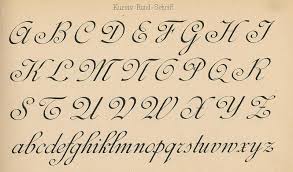 Kursiv-Rund-Schrift
A B C D E F G H I
K L M N O P Q R
S T U V W X Y Z
abcdefghiklmnopqrstuvwxyz